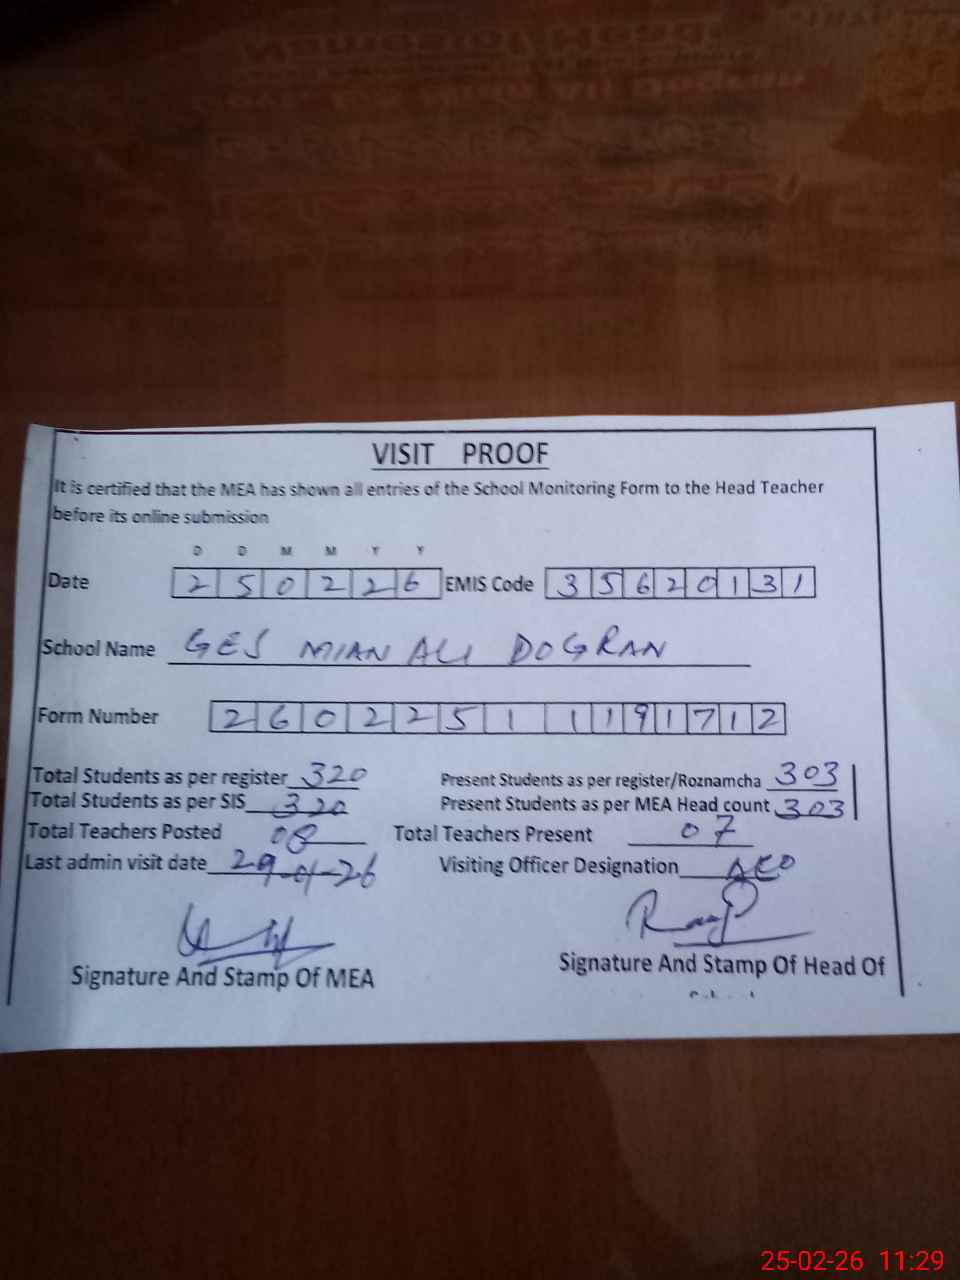 VISIT PROOF
It is certified that the MEA has shown all entries of the School Monitoring Form to the Head Teacher
before its online submission
D D M M Y Y
Date 2 5 0 2 2 6 EMIS Code 3 5 6 2 0 1 3 1
School Name GES MIAN ALI DOGRAN
Form Number 2 6 0 2 2 5 1 1 1 9 1 7 1 2
Total Students as per register 320 Present Students as per register/Roznamcha 303
Total Students as per SIS 320 Present Students as per MEA Head count 303
Total Teachers Posted 08 Total Teachers Present 07
Last admin visit date 29-01-26 Visiting Officer Designation AEO
Signature And Stamp Of MEA Signature And Stamp Of Head Of
25-02-26 11:29